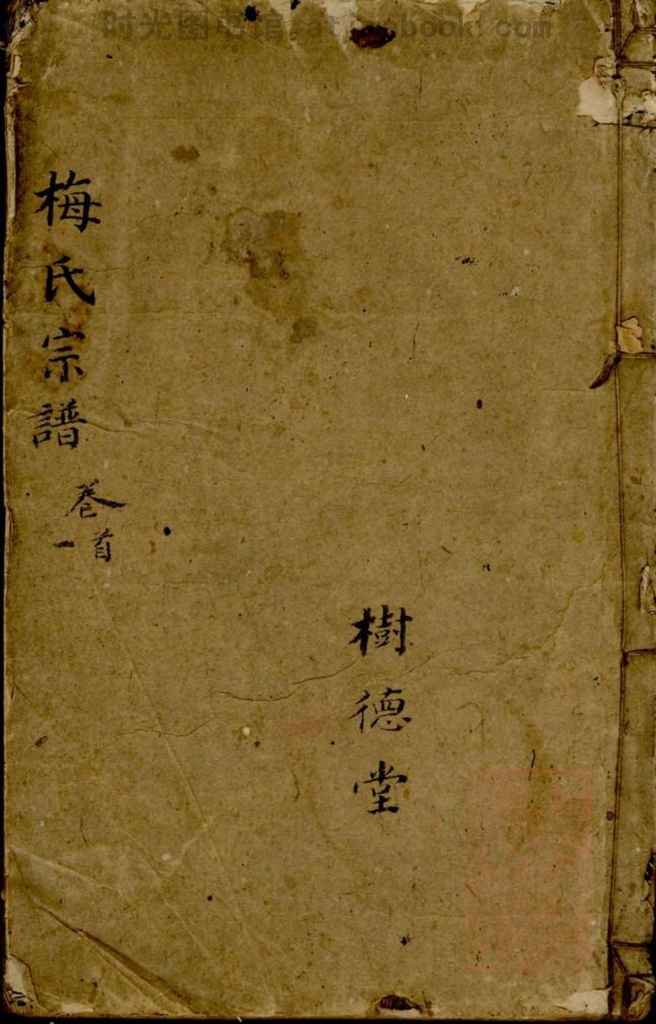 时光图书馆
樹德堂
梅氏宗譜
卷首
一